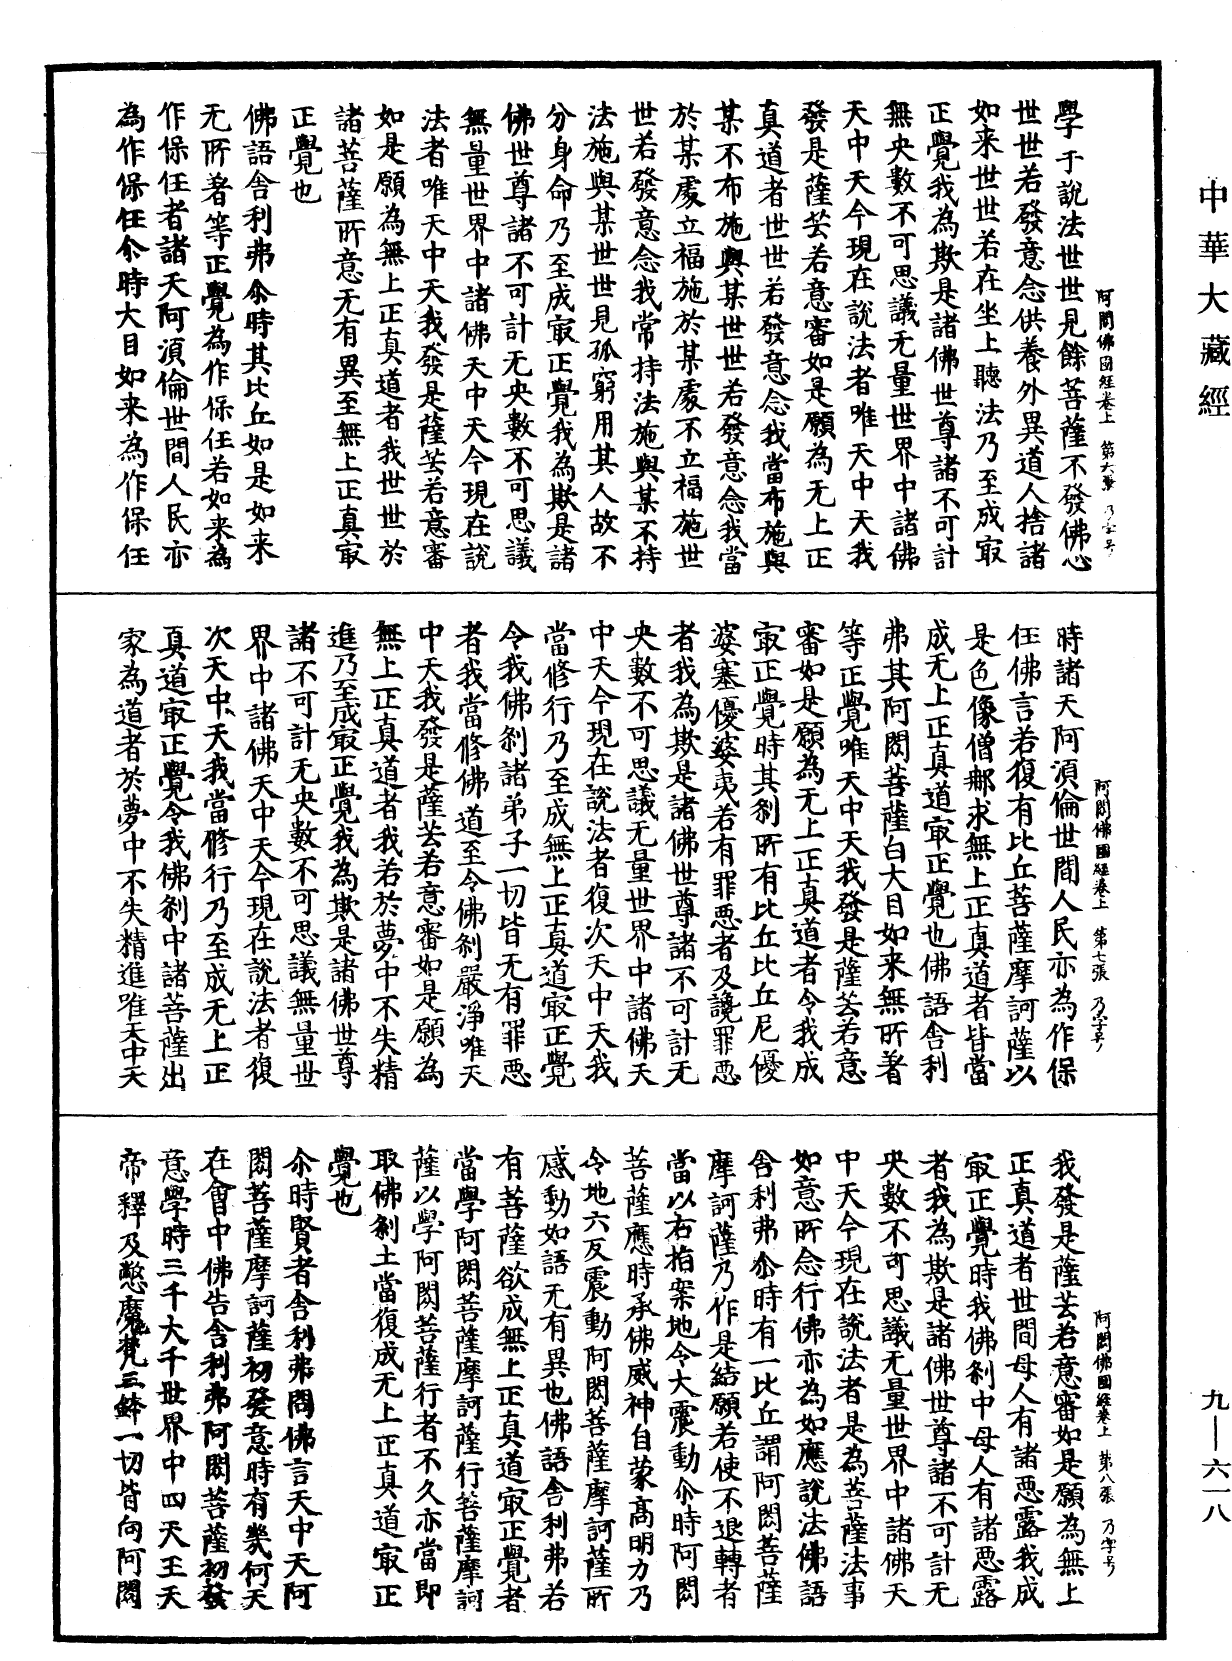 中華大藏經
阿閦佛國經卷上　第六張　乃字号
學于說法世世見餘菩薩不發佛心
世世若發意念供養外異道人捨諸
如来世世若在坐上聽法乃至成㝡
正覺我為欺是諸佛世尊諸不可計
無央數不可思議无量世界中諸佛
天中天今現在說法者唯天中天我
發是薩芸若意審如是願為无上正
真道者世世若發意念我當布施與
某不布施與某世世若發意念我當
於某處立福施於某處不立福施世
世若發意念我常持法施與某不持
法施與某世世見孤窮用其人故不
分身命乃至成㝡正覺我為欺是諸
佛世尊諸不可計无央數不可思議
無量世界中諸佛天中天今現在說
法者唯天中天我發是薩芸若意審
如是願為無上正真道者我世世於
諸菩薩所意无有異至無上正真㝡
正覺也
佛語舍利弗尒時其比丘如是如来
无所著等正覺為作保任若如来為
作保任者諸天阿須倫世間人民亦
為作保任尒時大目如来為作保任
阿閦佛國經卷上　第七張　乃字号
時諸天阿須倫世間人民亦為作保
任佛言若復有比丘菩薩摩訶薩以
是色像僧那求無上正真道者皆當
成无上正真道㝡正覺也佛語舍利
弗其阿閦菩薩白大目如来無所著
等正覺唯天中天我發是薩芸若意
審如是願為无上正真道者令我成
㝡正覺時其刹所有比丘比丘尼優
婆塞優婆夷若有罪惡者及讒罪惡
者我為欺是諸佛世尊諸不可計无
央數不可思議无量世界中諸佛天
中天今現在說法者復次天中天我
當修行乃至成無上正真道㝡正覺
令我佛刹諸弟子一切皆无有罪惡
者我當修佛道至令佛刹嚴淨唯天
中天我發是薩芸若意審如是願為
無上正真道者我若於夢中不失精
進乃至成㝡正覺我為欺是諸佛世尊
諸不可計无央數不可思議無量世
界中諸佛天中天今現在說法者復
次天中天我當修行乃至成无上正
真道㝡正覺令我佛刹中諸菩薩出
家為道者於夢中不失精進唯天中天
阿閦佛國經卷上　第八張　乃字号
我發是薩芸若意審如是願為無上
正真道者世間母人有諸惡露我成
㝡正覺時我佛刹中母人有諸惡露
者我為欺是諸佛世尊諸不可計无
央數不可思議无量世界中諸佛天
中天今現在說法者是為菩薩法事
如意所念行佛亦為如應說法佛語
舍利弗尒時有一比丘謂阿閦菩薩
摩訶薩乃作是結願若使不退轉者
當以右指案地令大震動尒時阿閦
菩薩應時承佛威神自蒙高明力乃
令地六反震動阿閦菩薩摩訶薩所
感動如語无有異也佛語舍利弗若
有菩薩欲成無上正真道㝡正覺者
當學阿閦菩薩摩訶薩行菩薩摩訶
薩以學阿閦菩薩行者不久亦當即
取佛刹土當復成无上正真道㝡正
覺也
尒時賢者舍利弗問佛言天中天阿
閦菩薩摩訶薩初發意時有幾何天
在會中佛告舍利弗阿閦菩薩初發
意學時三千大千世界中四天王天
帝釋及憋魔梵三鉢一切皆向阿閦
九—六一八